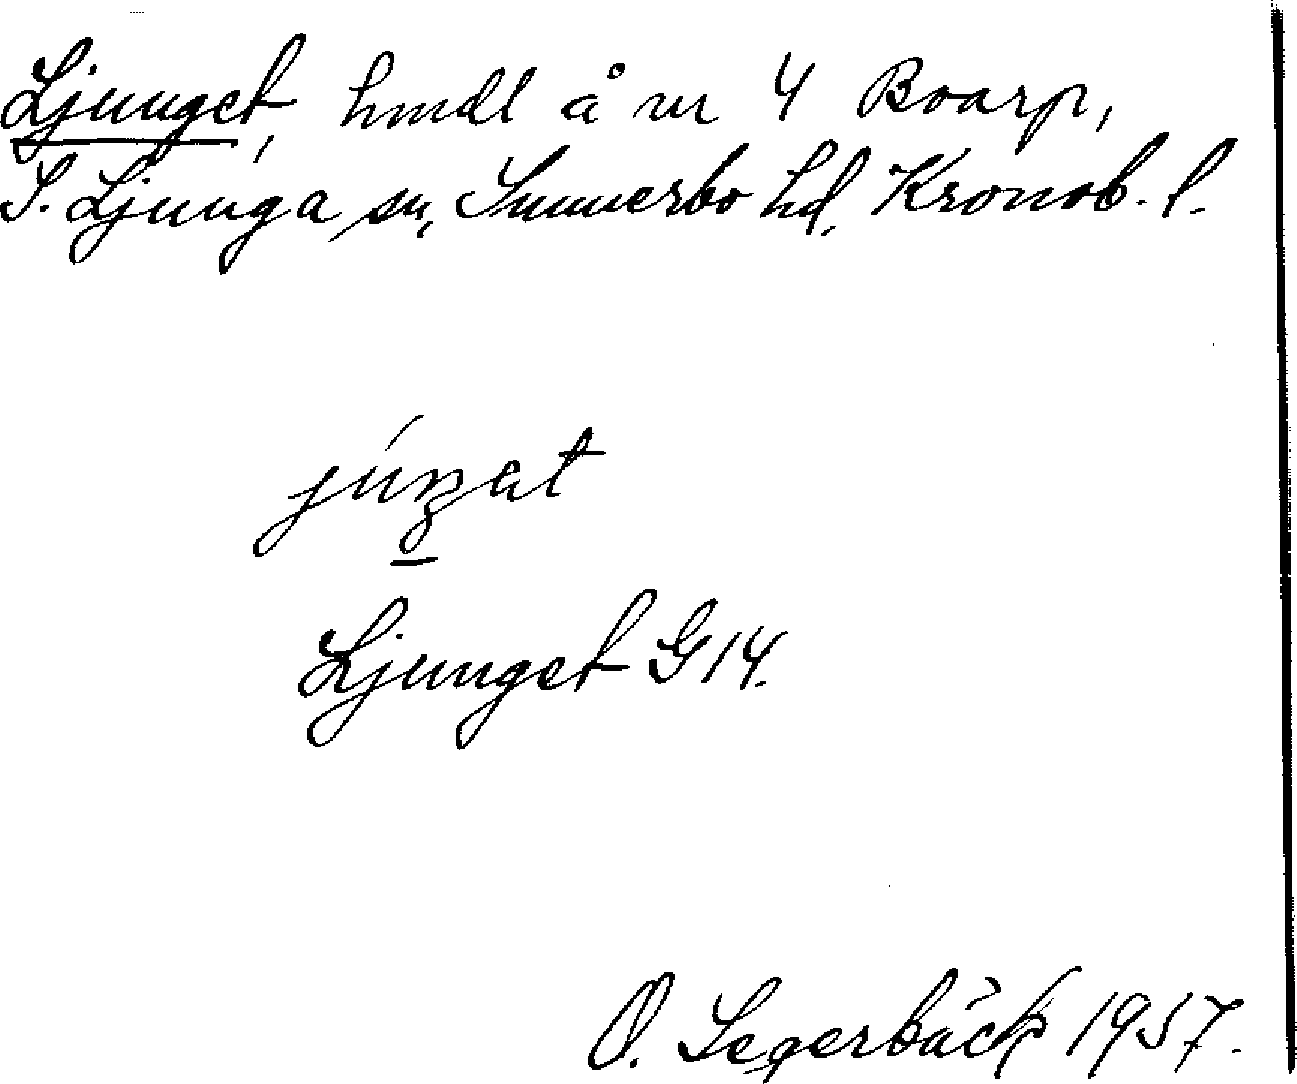 Ljunget, hmdl å nr 4 Boarp,
S. Ljunga sn, Sunnerbo hd, Kronob. l.
Ljunget G14.
O. Segerbäck 1957.